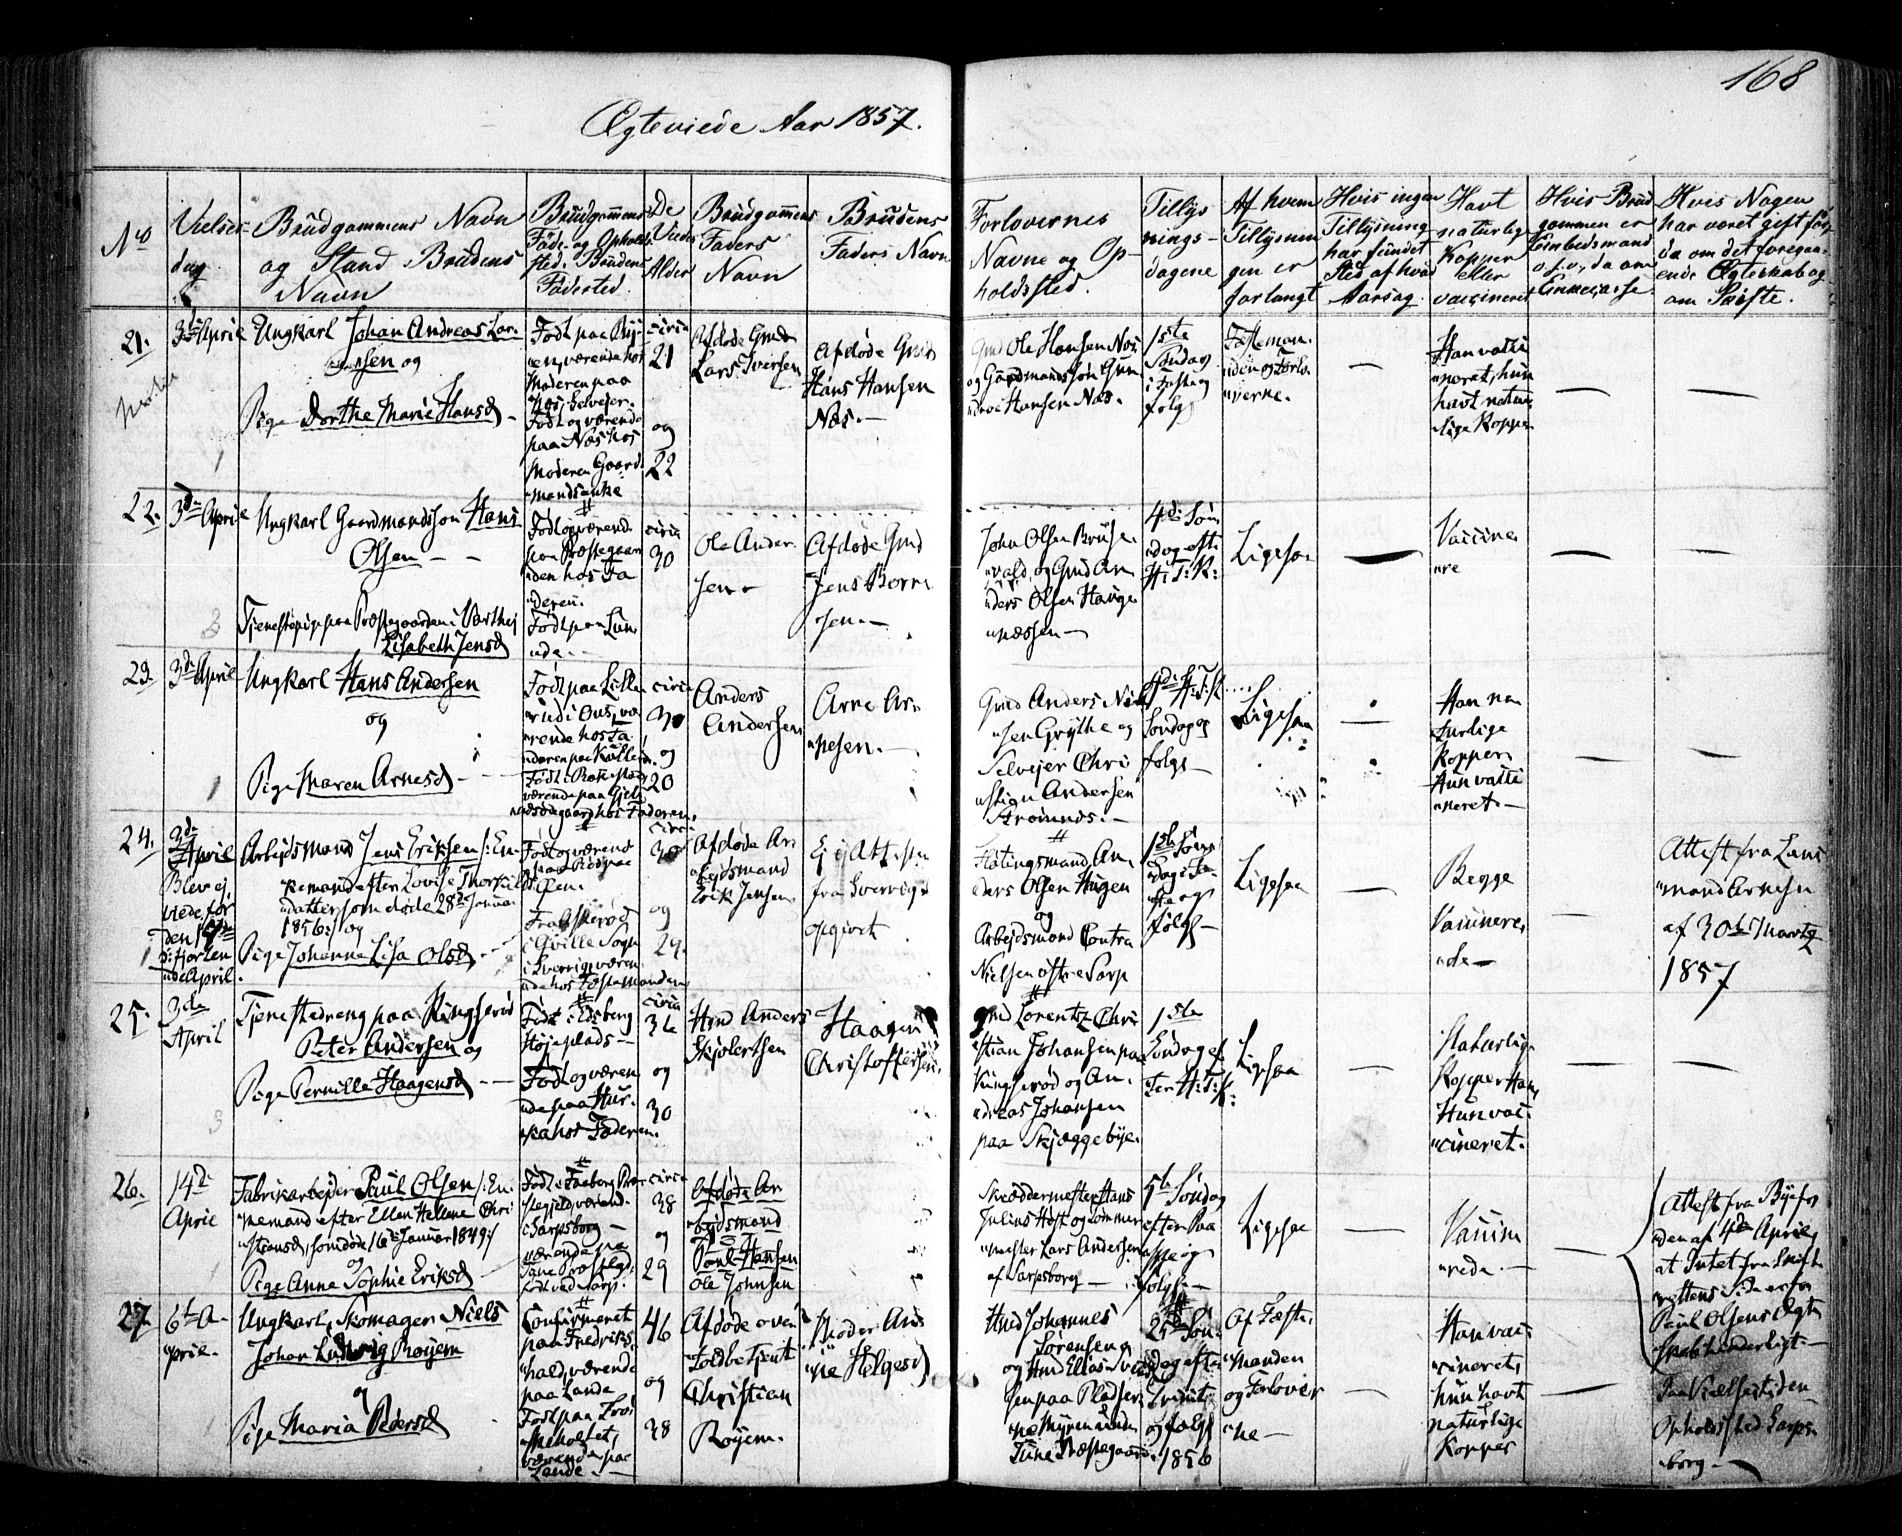 168
Ægteviede Aar 1857.
No
Vielses-
dag
Brudgommens Navn
og Stand Brudens
Navn
Brudgommens
Føde- og Opholds
sted. Brudens
Fødested.
De
Viedes
Alder
Brudgommens
Faders
Navn
Brudens
Faders Navn
Forlovernes
Navne og Op-
holdssted.
Tillys
nings-
dagene
Af hvem
Tillysnin
gen er
forlangt
Hvis ingen
Tillysning
har fundet
Sted af hvad
Aarsag.
Havt
naturlige
Kopper
eller
vaccineret
Hvis Brud
gommen er
Embedsmand
o.s.v., da om
Enkecasse.
Hvis Nogen
har været gift før,
da om det foregaa-
ende Ægteskab og
om Skifte.
21.
3die April
Ungkarl Johan Andreas Lar-
sen og
Pige Dorthe Marie Hansd
værende hos
Moderen paa
Næs, Selveier.
Født og værende
paa Næs hos
Moderen Gaard
mandsenke
circa
21
og
22
Afdøde Gmd
Lars Iversen
Afdøde Gmd
Hans Hansen
Næs.
Gmd Ole Hansen Næs
og Gaardmandssøn Gun
Hansen Næs.
1ste
Søndag
i Faste og
følg
Fæsteman-
den og Forlo-
verne.
Han vacci
neret, hun
havt natur
lige Kopper
22.
3die April
Ungkarl Gaardmandssøn Hans
Olsen
Tjenestepige paa Præstegaarden i Varteig
Lisabeth Jensd
Født og værende
paa Præstegaar
den hos Fa
deren.
Født paa Lun
de.
circa
30
Ole Ander
sen
Afdøde Gmd
Jens Børre
sen.
John Olsen Bruse
vald, og Gmd An
ders Olsen Hauge
næssen
4de Søn
dag eft.
H: T: K:
Ligesaa
Vaccine
re
23.
3die April
Ungkarl Hans Andersen
og
Pige Maren Arnesd
Født paa Lille
rud i Ous, væ
rende hos Fa
deren paa Kullerud.
værende paa
hos Faderen.
circa
30
og
20
Anders
Andersen
Arne Ar
nesen.
Gmd Anders Niel
sen Grythe og
Selveier Chri
stian Andersen
Strømnes.
4de H.T.K.
Søndag og
følg
Ligesaa
Han na
turlige
Kopper
Hun vacci
neret.
24.
3die
April
Blev ej
viede før
den 14de
d: fjorten
de April.
Arbejdsmand Jens Eriksen /: En-
kemand efter Lovise Thorkilds
datter som døde 28de Januar
1856 :/ og
Pige Johanne Lisa Olsd
Født og værende
paa
Fra Askerød
i Qville Sogn
i Sverrig, væren
de hos Fæstemanden
circa
30
og
29.
Afdøde Ar
bejdsmand
Erik Jensen
Ej i Attesten
fra Sverrige
opgivet
Fløtingsmand An
ders Olsen Haugen
og
Arbejdsmand Contra
Nielsen østre Sarp
1ste Søn
dag i Fa
ste og
følg
Ligesaa
Begge
Vaccinere
de
Attest fra Lens
mand Arnesen
af 30te Martz
1857
25.
3die
April
Tjenestedreng paa Kingserød
Peter Andersen og
Pige Pernille Haagensd
Født i Edsberg
Højeplads
Født og væren
de paa Hur-
hos Faderen.
circa
36
og
30
Hmd Anders
Skjolertsen
Haagen
Christoffersen.
Gmd Lorentz Chri
stian Johansen paa
Kingserød og An-
dreas Johansen
paa Skjæggebye.
1ste
Søndag ef
ter H: T: K:
Ligesaa
Naturlige
Kopper Han,
Hun vac
cineret.
26.
14de
April
Fabrikarbejder Paul Olsen /: En-
kemand efter Ellen Hellene Chri
stensd, som døde 16de Januar 1849 :/
og
Pige Anne Sophie Eriksd
Født i Faaberg Præ
stegjeld værende
i Sarpsborg
værende paa
Født ved Sarp.
circa
38
og
29
Afdøde Ar
bejdsmand
Poul Hansen
Ole Johnsen
Skræddermester Hans
Julius Høst og Tømmer
mester Lars Andersen
af Sarpsborg
5te Søndag
efter Paa
ske og
følg
Ligesaa
Vaccine
rede.
Attest fra Byefog
den af 4de April,
at Intet fra Skifte
rettens Side er for
Paul Olsens Ægte
skab hinderligt
27.
6te A-
pril.
Ungkarl, Skomager Niels
Johan Ludvig Røyem
og
Pige Maria Pedersd
Confirmeret
paa Fredriks
hald, værende
paa Lande
Født paa
værende paa
Lande.
46
og
38
Afdøde over
Toldbetjent
Christian
Røyem.
Moder An
ne Helgesd
Hmd Johannes
Sørensen
og Hmd Elias Svend
sen paa Pladsen
Myren under
Tune Præstegaard.
25de Søn
dag eft.
Trinit
og følg
1856
Af Fæste
manden
og Forlover
ne
Han vac
cineret,
hun havt
naturlige
Kopper
Paa Vielsestiden
Opholdssted Sarps
borg